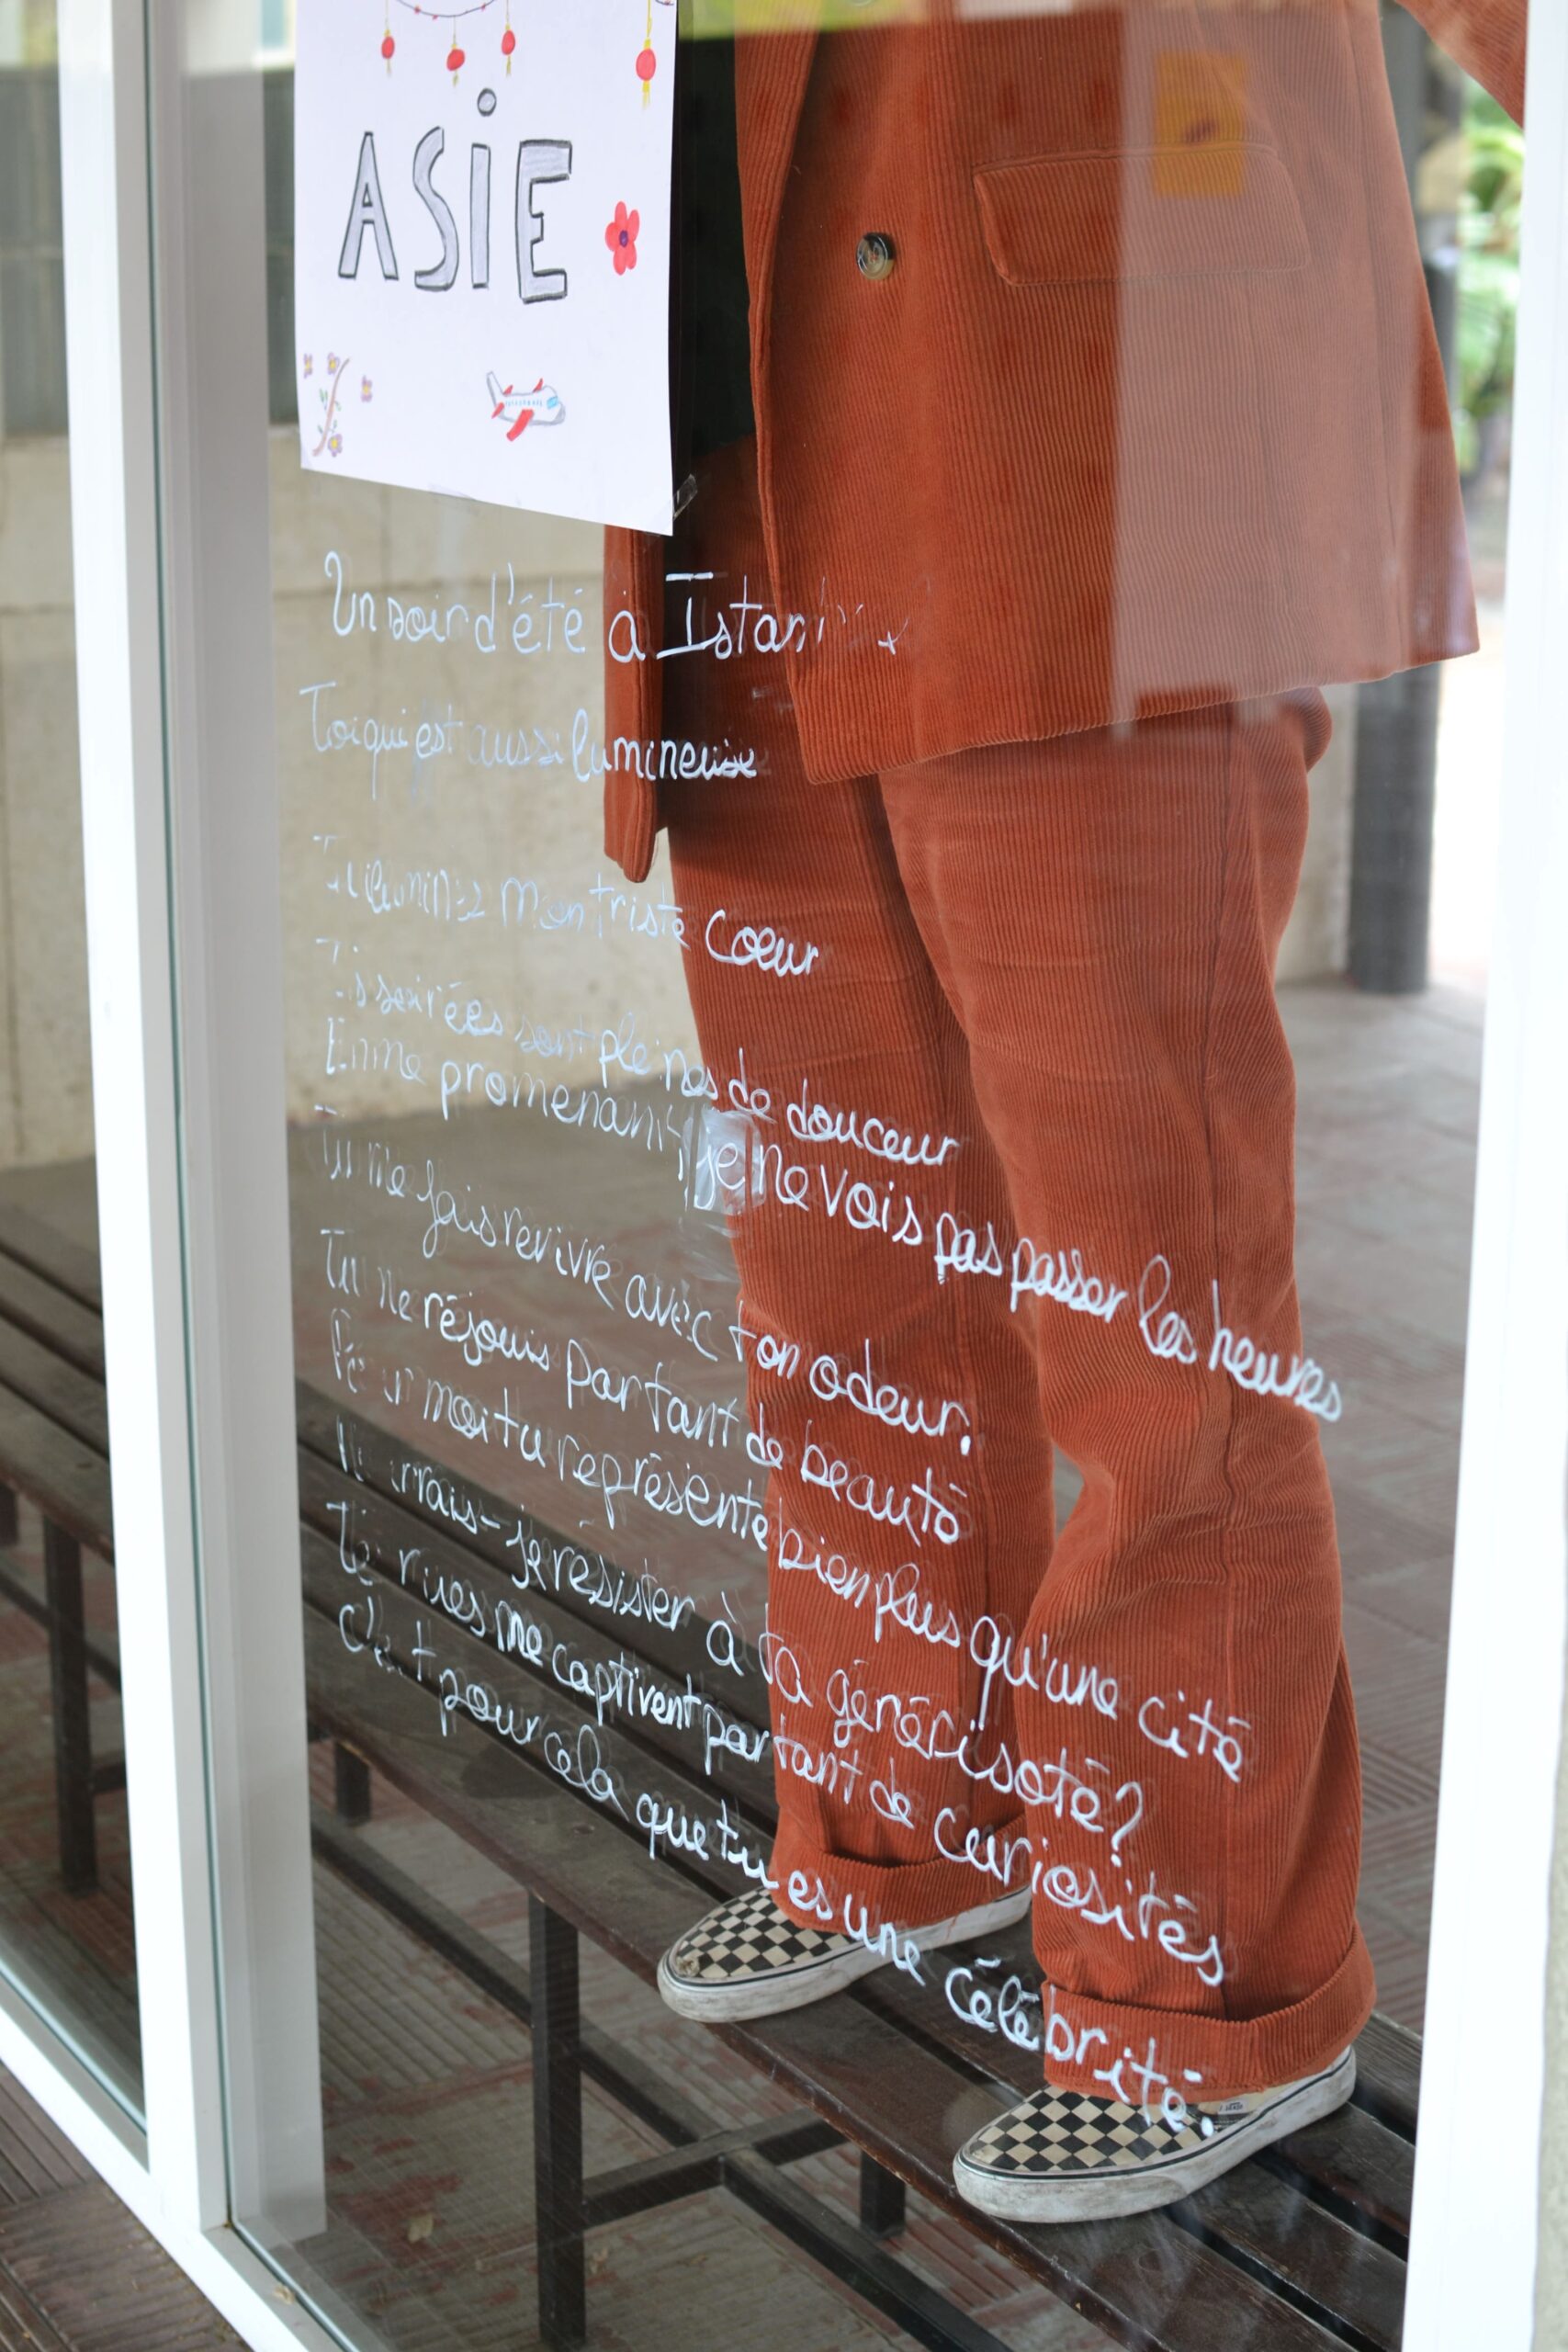 ASiE
Un soir d'été à Istanbul
Toi qui est aussi lumineuse
Tu illumines mon triste coeur
Tes soirées sont pleines de douceur
En me promenant, je ne vois pas passer les heures
Tu me fais revivre avec ton odeur.
Tu me réjouis par tant de beauté
Pour moi tu représente bien plus qu'une cité
Pourrais-je résister à ta générisoté?
Tes rues me captivent par tant de curiosités
C'est pour cela que tu es une célébrité.